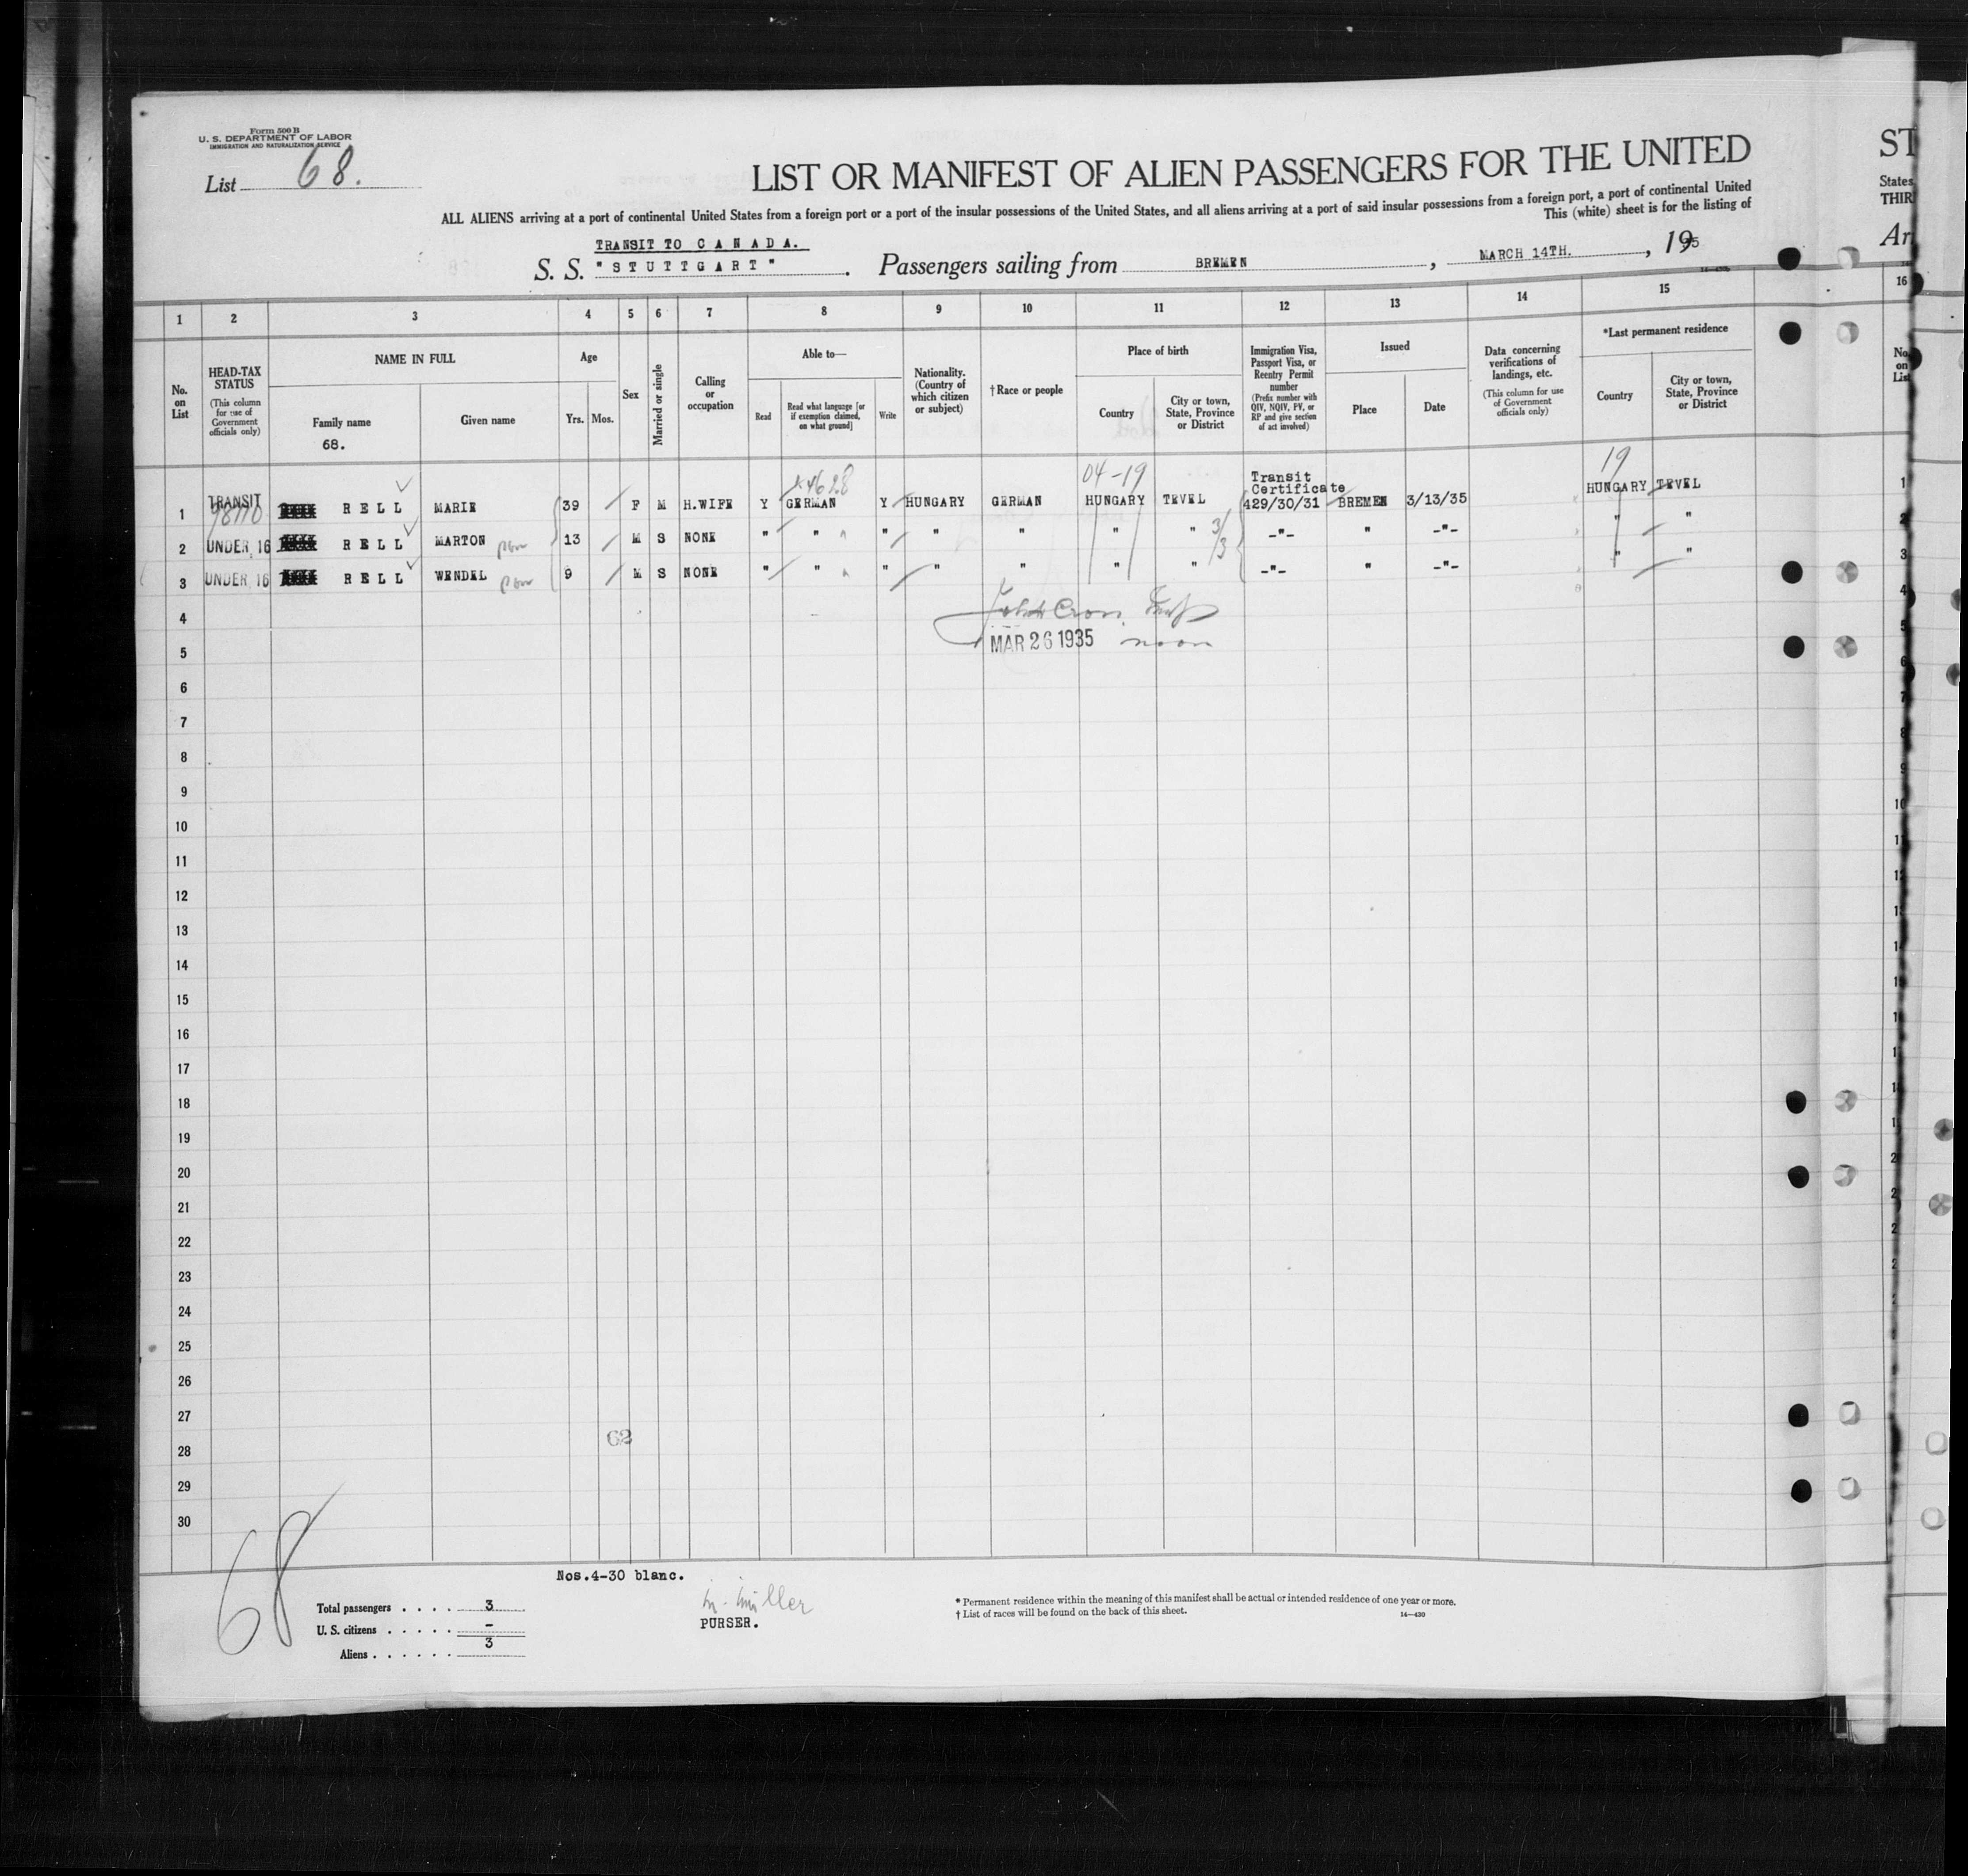 Form 500 B
U. S. DEPARTMENT OF LABOR
IMMIGRATION AND NATURALIZATION SERVICE
List 68.
LIST OR MANIFEST OF ALIEN PASSENGERS FOR THE UNITED
ST
ALL ALIENS arriving at a port of continental United States from a foreign port or a port of the insular possessions of the United States, and all aliens arriving at a port of said insular possessions from a foreign port, a port of continental United
States
This (white) sheet is for the listing of
THIR
TRANSIT TO C A N A D A.
S. S. "S T U T T G A R T". Passengers sailing from BREMEN, MARCH 14TH., 1935
Ar
1 2 3 4 5 6 7 8 9 10 11 12 13 14 15 16
No. on List
HEAD-TAX STATUS (This column for use of Government officials only)
NAME IN FULL
Family name
68.
Given name
Age
Yrs. Mos.
Sex
Married or single
Calling or occupation
Able to—
Read
Read what language [or if exemption claimed, on what ground]
Write
Nationality. (Country of which citizen or subject)
† Race or people
Place of birth
Country
City or town, State, Province or District
Immigration Visa, Passport Visa, or Reentry Permit number (Prefix number with QIV, NQIV, PV, or RP and give section of act involved)
Issued
Place
Date
Data concerning verifications of landings, etc. (This column for use of Government officials only)
*Last permanent residence
Country
City or town, State, Province or District
No. on List
04-19
19
Transit
Certificate
1 TRANSIT R E L L MARIE 39 F M H.WIFE Y GERMAN Y HUNGARY GERMAN HUNGARY TEVEL 429/30/31 BREMEN 3/13/35 HUNGARY TEVEL 1
2 UNDER 16 R E L L MARTON 13 M S NONE " " " " " " " -"- " -"- " " 2
3 UNDER 16 R E L L WENDEL 9 M S NONE " " " " " " " -"- " -"- " " 3
3/3
4
5 MAR 26 1935 noon
6
7
8
9
10
11
12
13
14
15
16
17
18
19
20
21
22
23
24
25
26
27
62
28
29
30
68
Nos.4-30 blanc.
Total passengers . . . . 3
U. S. citizens . . . . . -
Aliens . . . . . . 3
Müller
PURSER.
* Permanent residence within the meaning of this manifest shall be actual or intended residence of one year or more.
† List of races will be found on the back of this sheet.
14—430